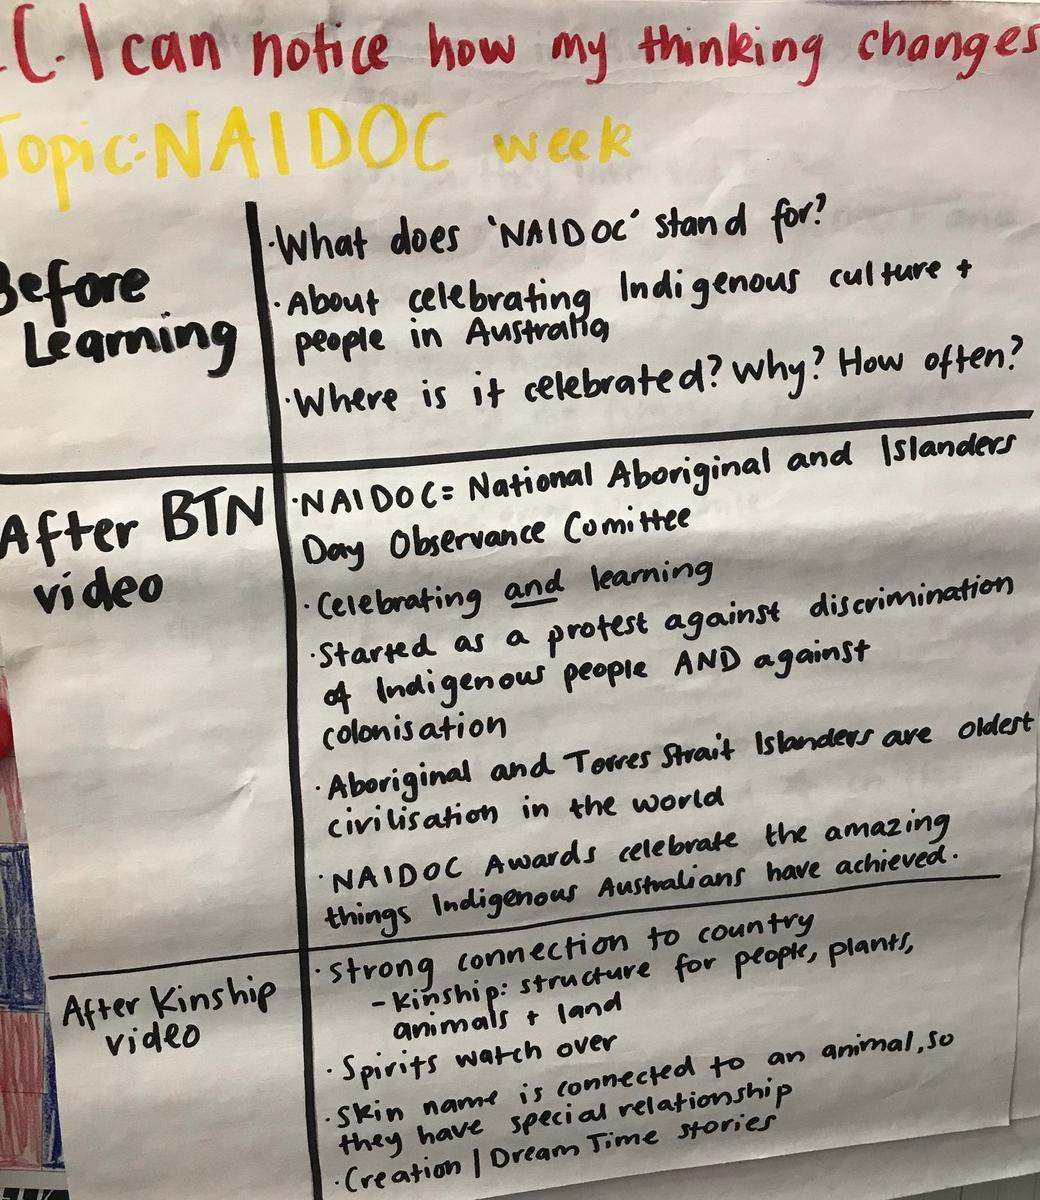 .C. I can notice how my thinking changes
Topic: NAIDOC week
Before
Learning
·What does 'NAIDOC' stand for?
·About celebrating Indigenous culture +
people in Australia
·Where is it celebrated? Why? How often?
After BTN
video
·NAIDOC= National Aboriginal and Islanders
Day Observance Comittee
·Celebrating and learning
·Started as a protest against discrimination
of Indigenous people AND against
colonisation
·Aboriginal and Torres Strait Islanders are oldest
civilisation in the world
·NAIDOC Awards celebrate the amazing
things Indigenous Australians have achieved.
After Kinship
video
·strong connection to country
-Kinship: structure for people, plants,
animals + land
·Spirits watch over
·Skin name is connected to an animal, so
they have special relationship
·Creation | Dream Time stories